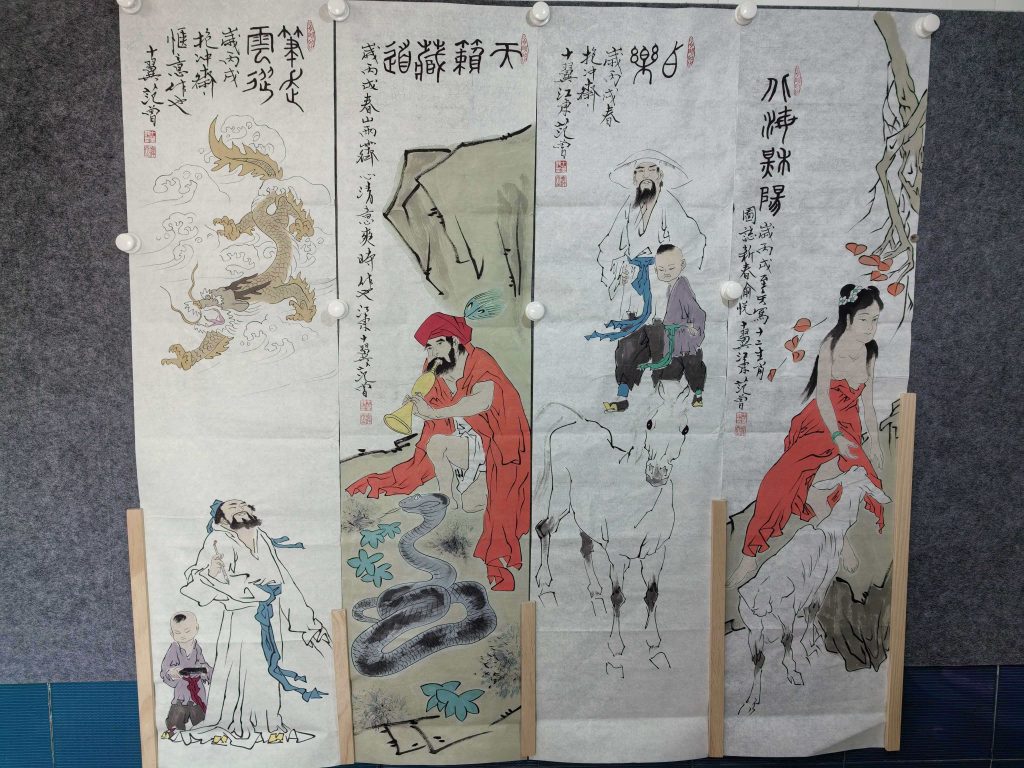 陽
歲丙戌寫十二生肖
圖誌新春俞悅十翼江東范曾
樂
歲丙戌春
抱沖齋
十翼江東范曾
天籟藏道
歲丙戌春山雨霽心清意爽時作也江東十翼范曾
筆走
雲從
歲丙戌
抱沖齋
愜意作也
十翼范曾